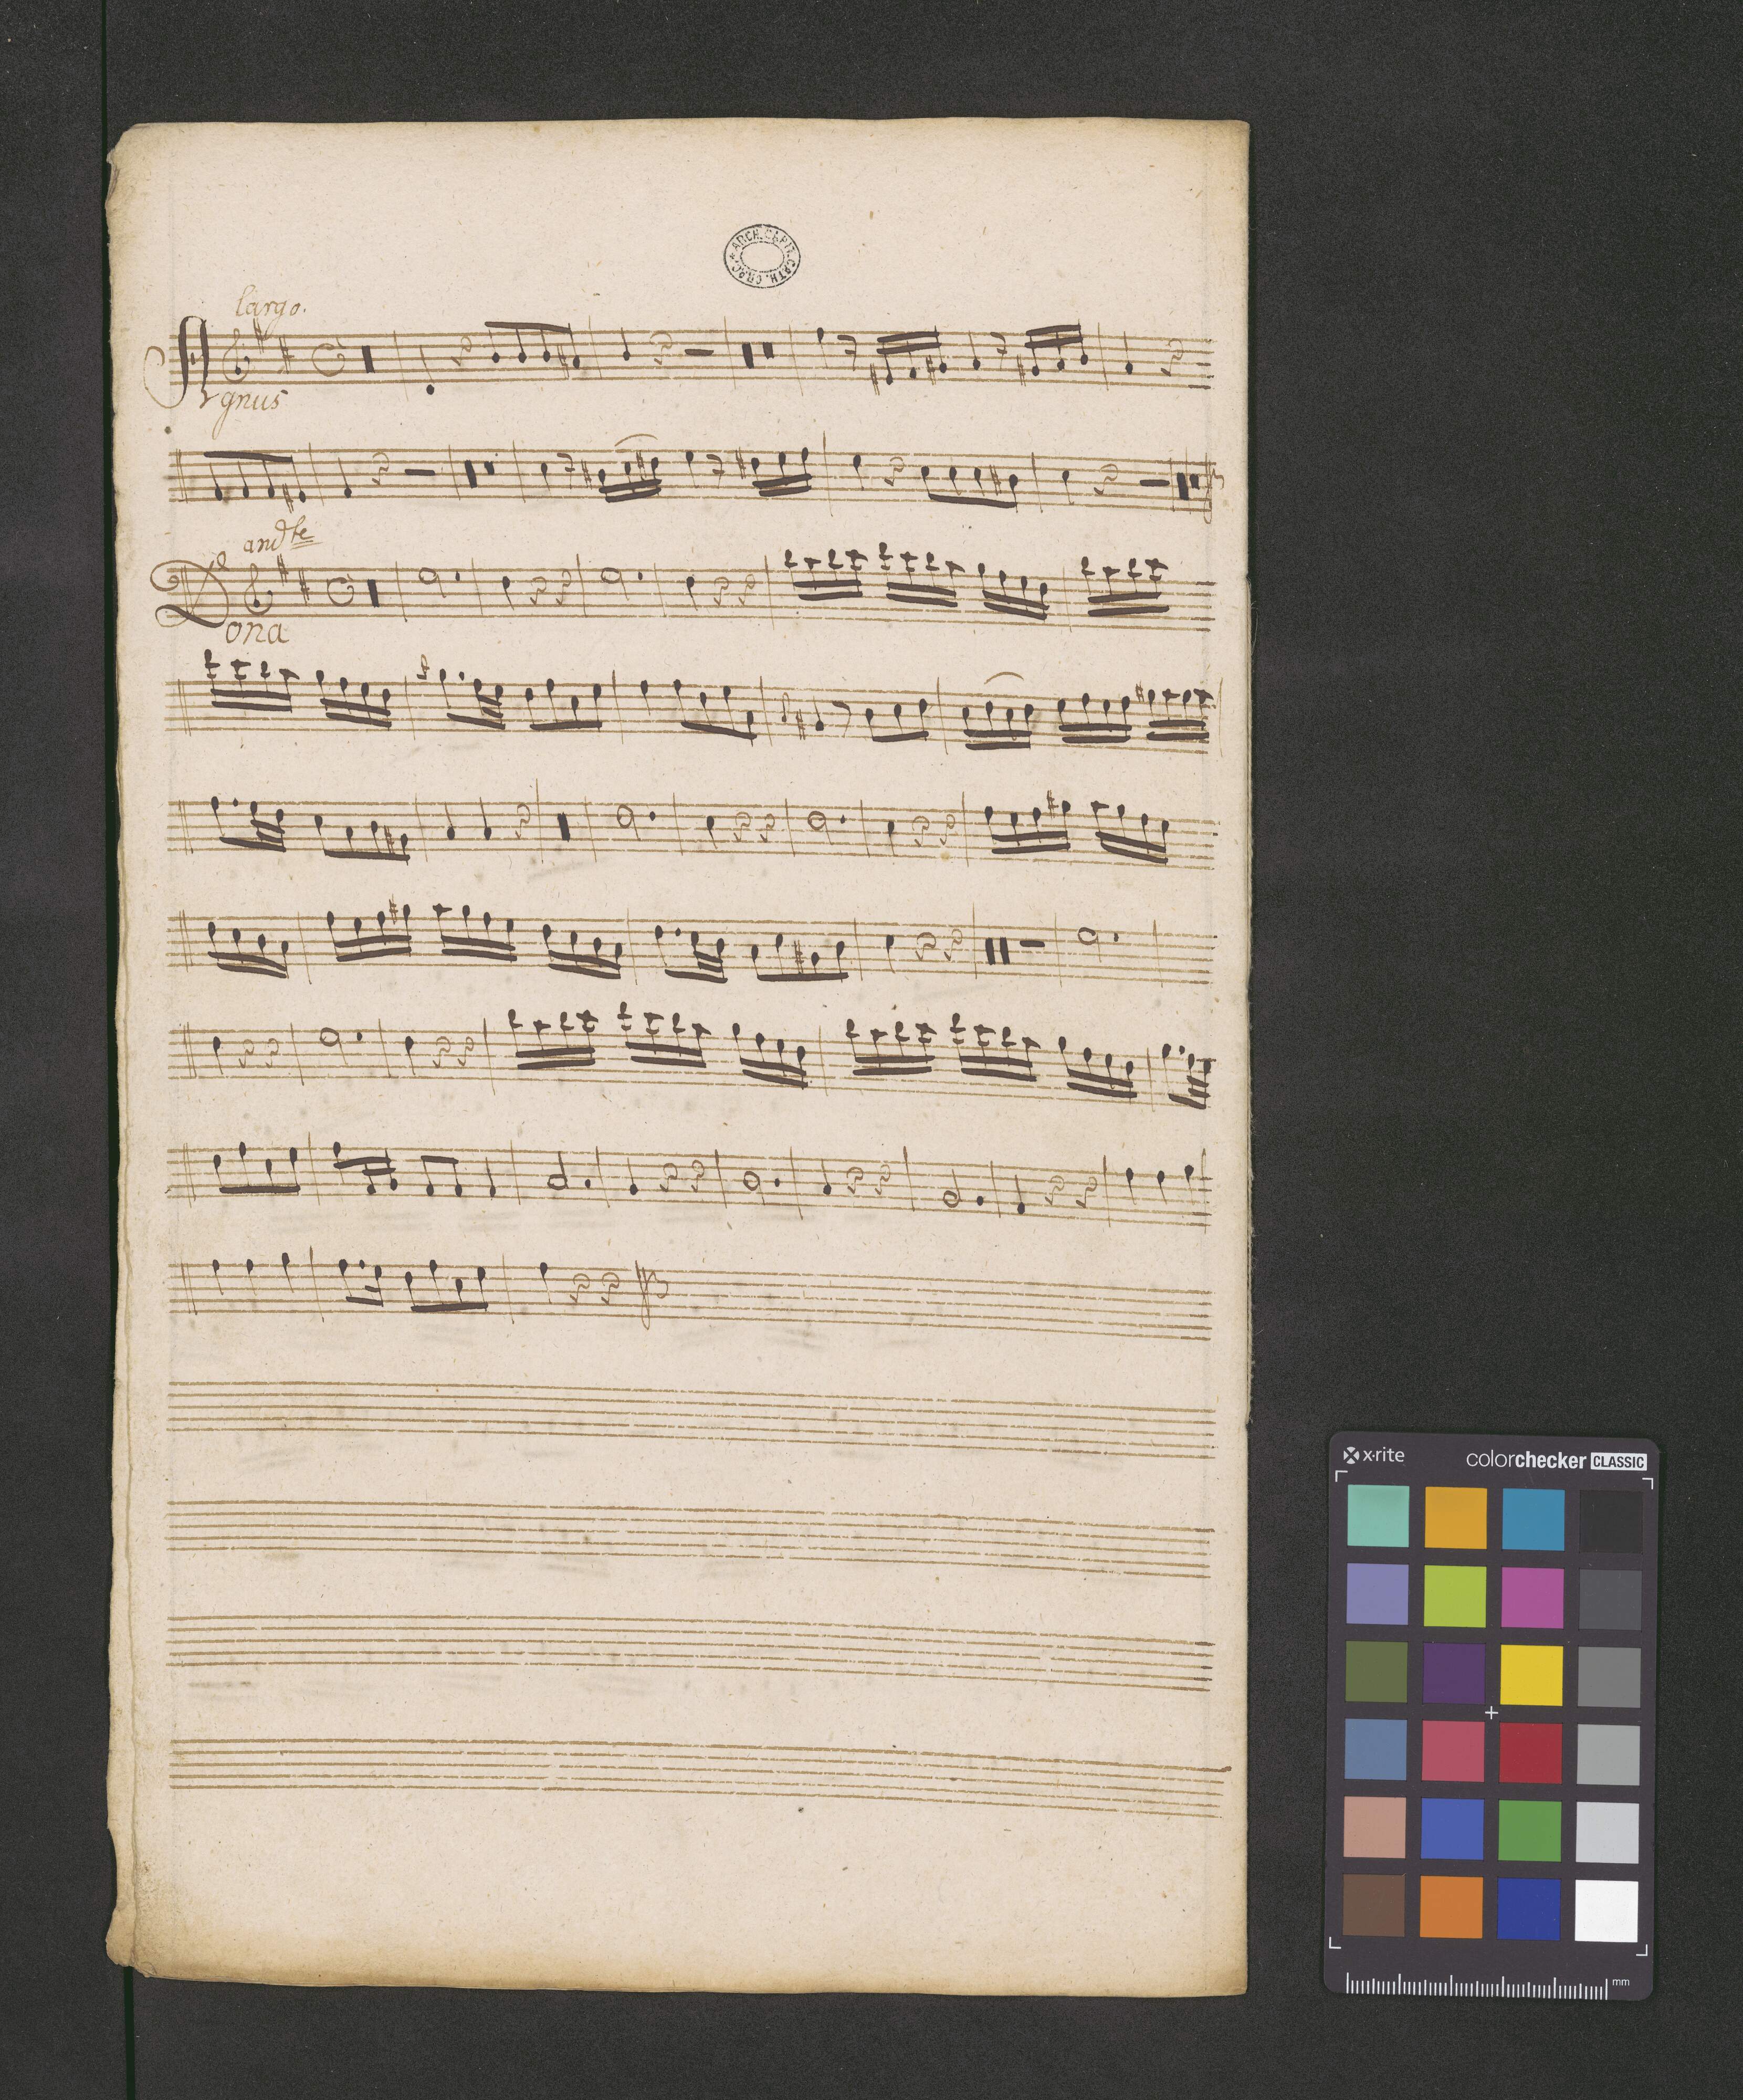 ARCH. CAPIT. CATH. CRAC.
largo.
Agnus
andte
Dona
x-rite
colorchecker CLASSIC
mm